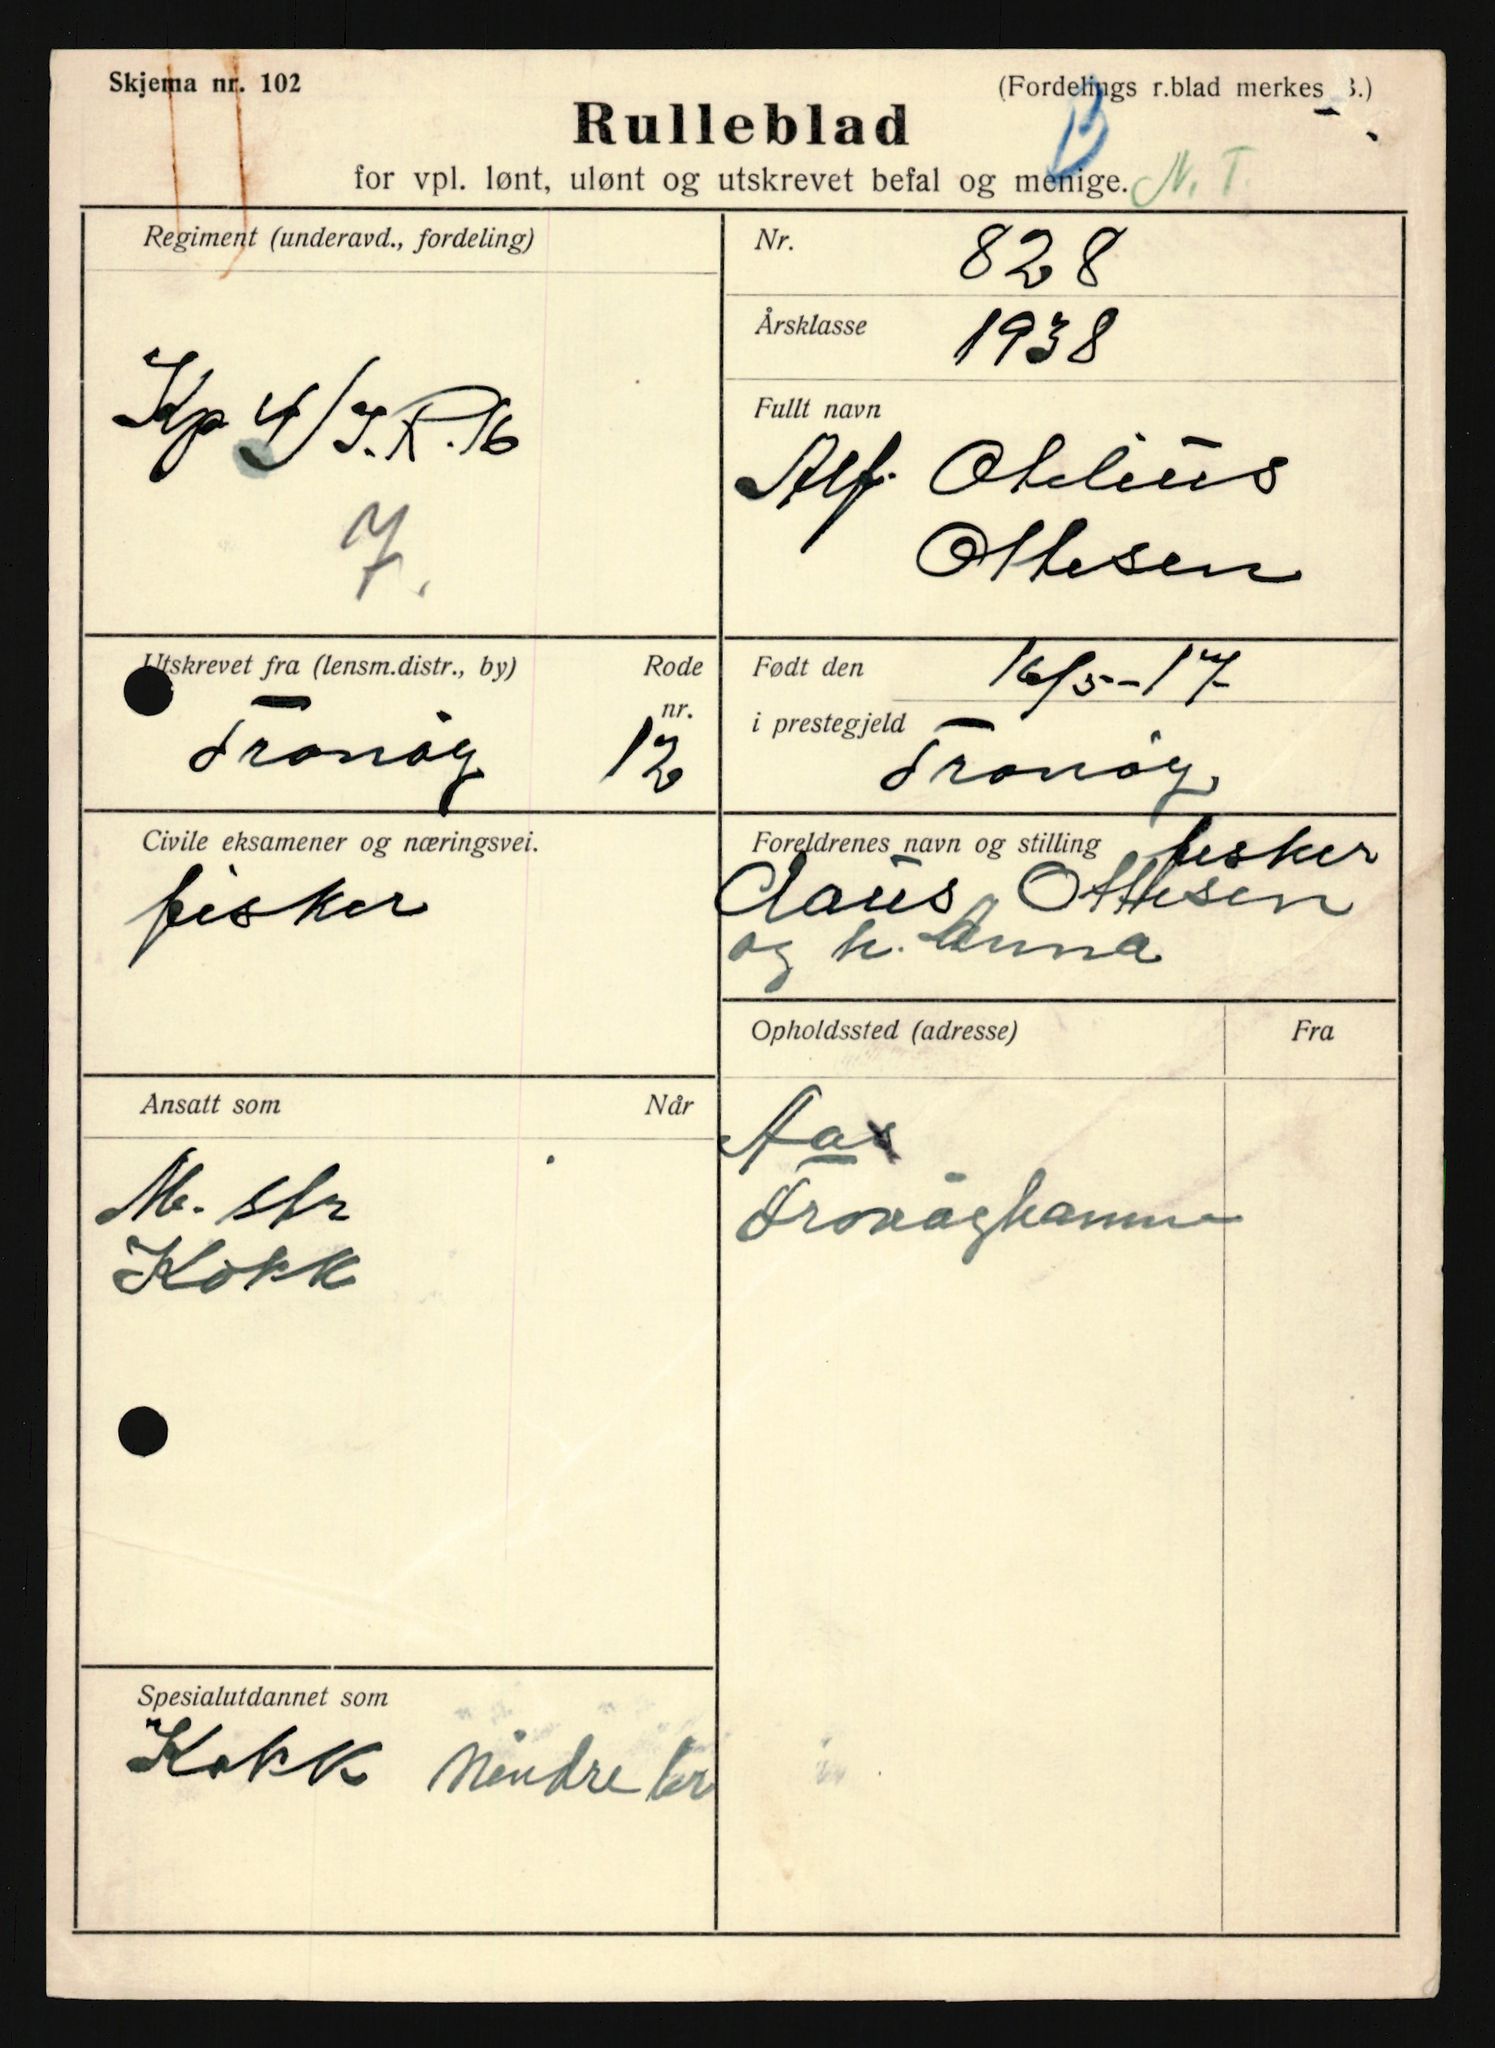 Skjema nr. 102
(Fordelings r.blad merkes B.)
Rulleblad
B
for vpl. lønt, ulønt og utskrevet befal og menige. N. T.
Regiment (underavd., fordeling)
Kp 4/I.R.16
7.
Nr. 828
Årsklasse 1938
Fullt navn
Alf Otelius
Ottesen
Utskrevet fra (lensm.distr., by) Rode nr.
Tranöy 12
Født den 16/5-17
i prestegjeld Tranöy
Civile eksamener og næringsvei.
fisker
Foreldrenes navn og stilling fisker
Claus Ottesen
og h. Anna
Opholdssted (adresse) Fra
Aas
Ansatt som Når
M. str
Kokk
Spesialutdannet som
Kokk Mindre br